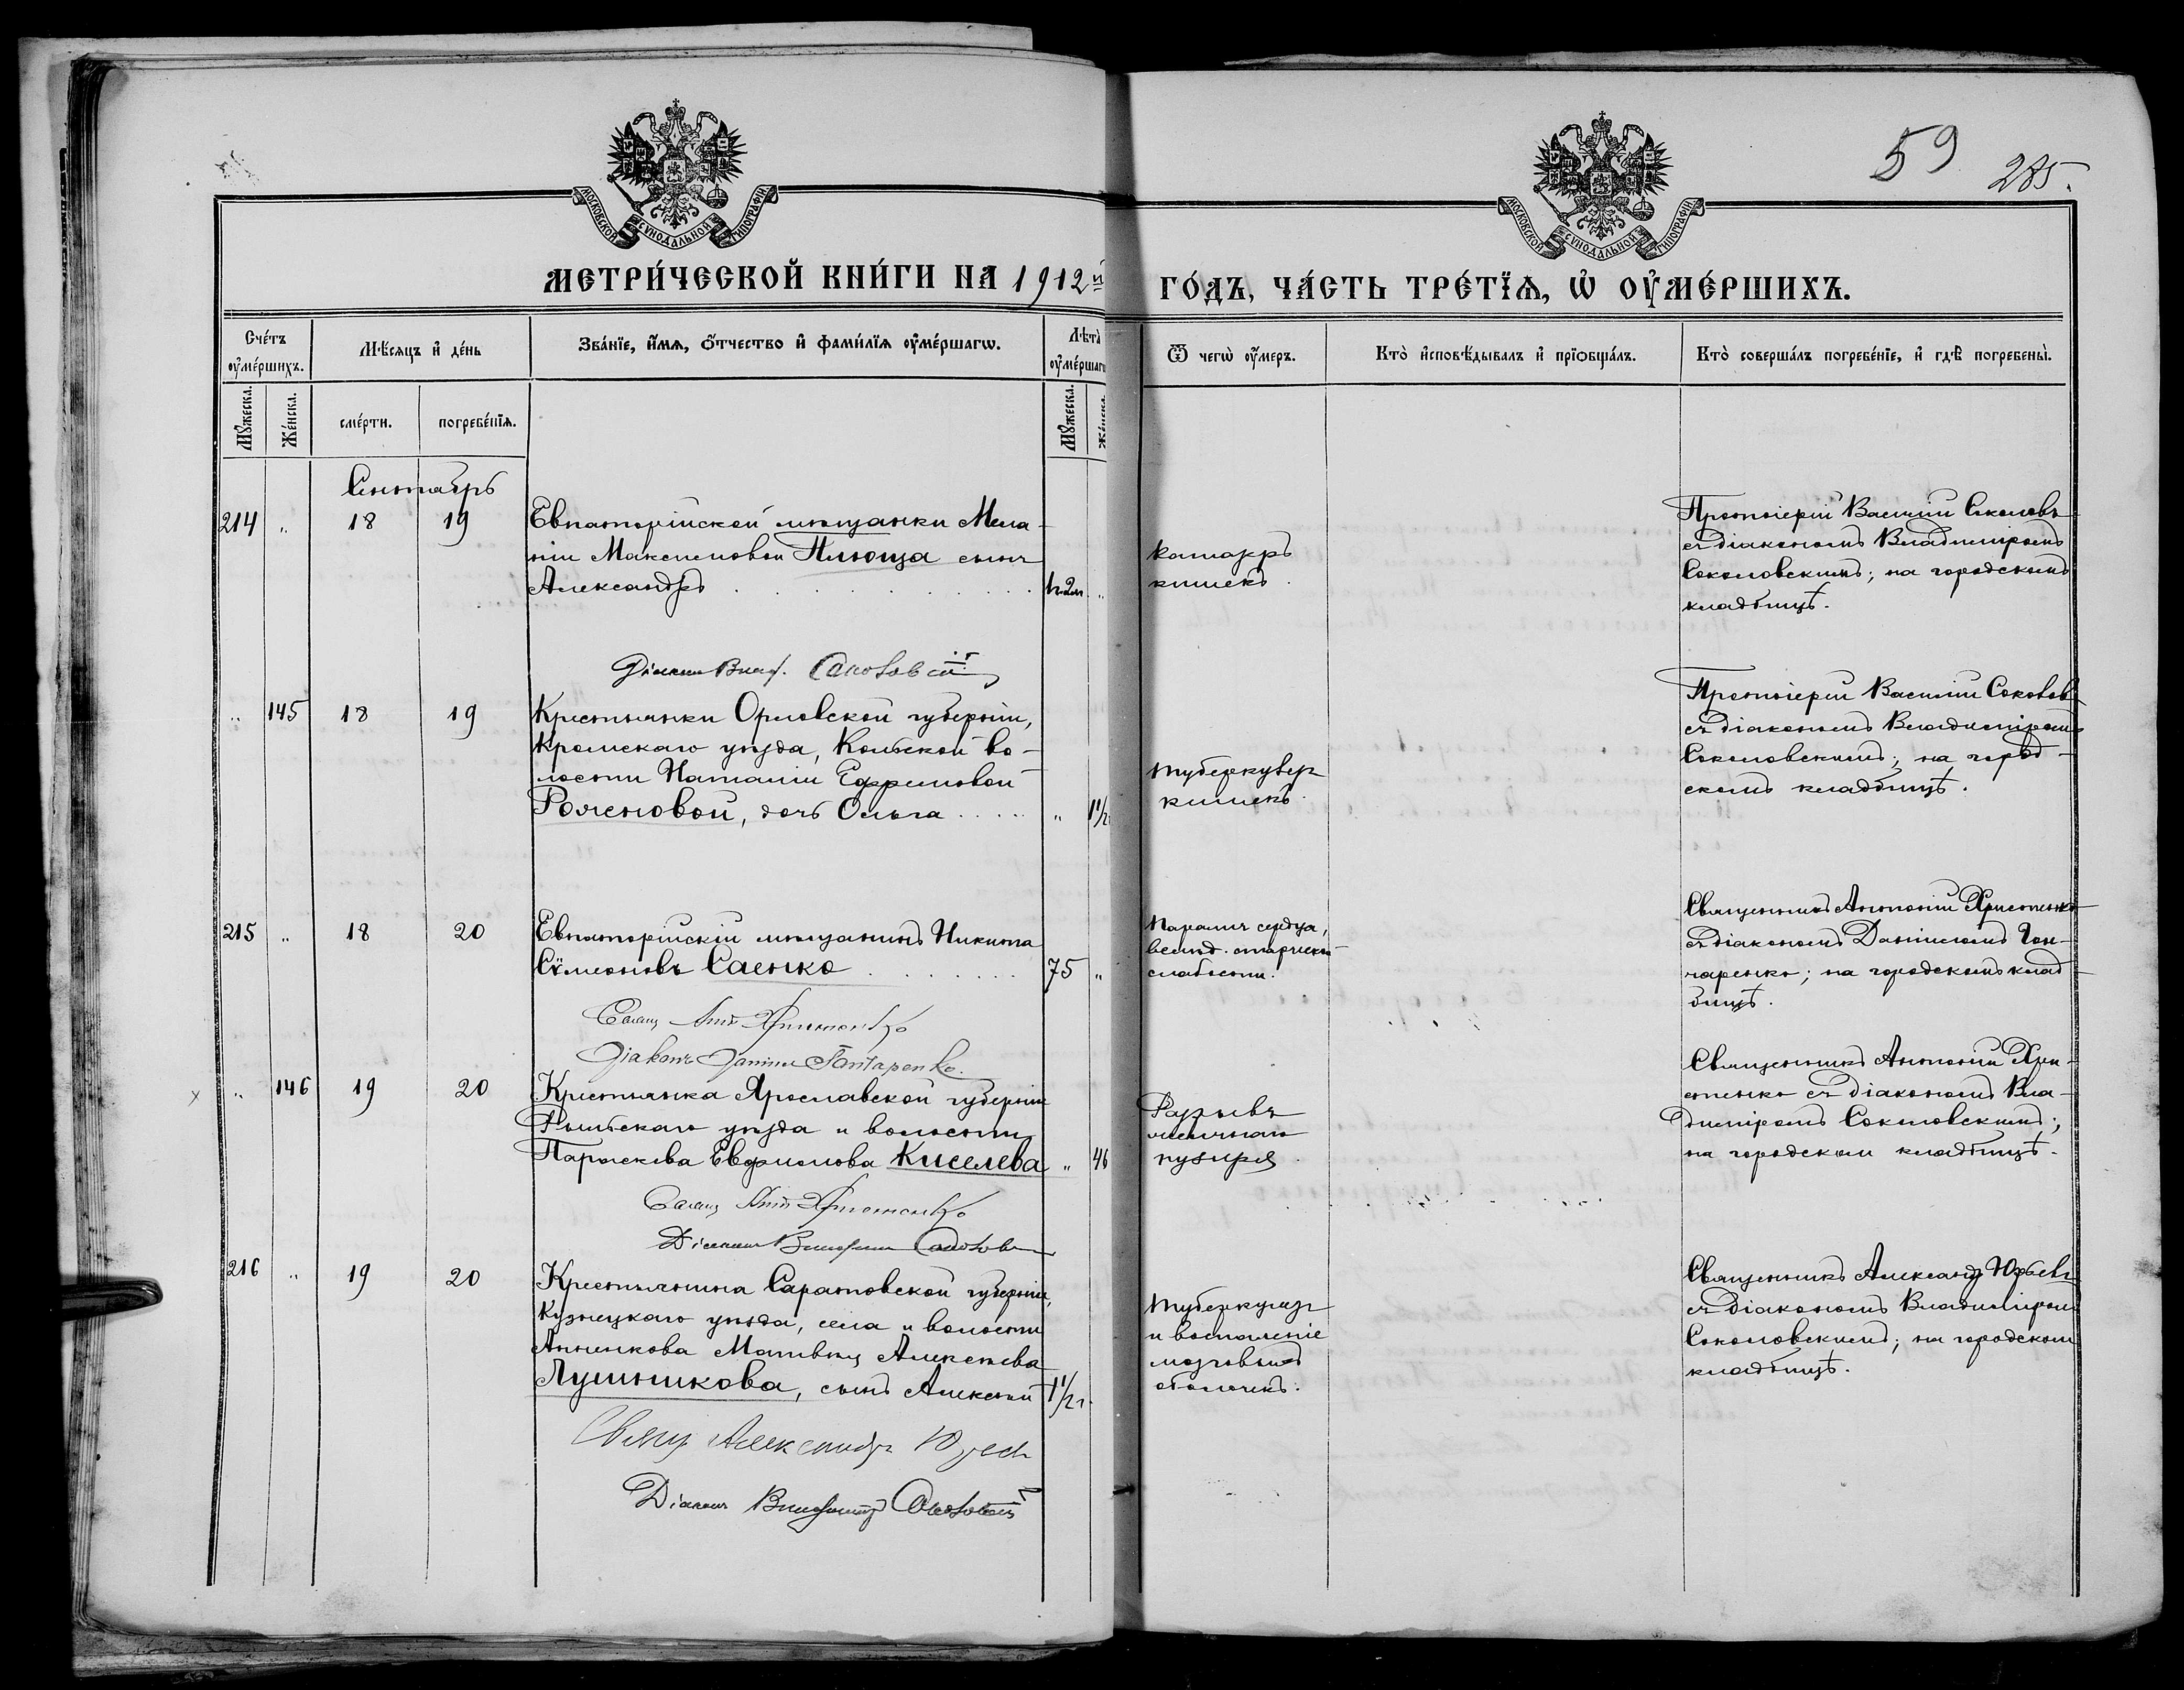 59
285.
МОСКОВСКОЙ СѴНОДАЛЬНОЙ ТИПОГРАФІИ
МОСКОВСКОЙ СѴНОДАЛЬНОЙ ТИПОГРАФІИ
МЕТРИ́ЧЕСКОЙ КНИ́ГИ НА 1912й ГО́ДЪ, ЧА́СТЬ ТРЕ́ТЇѦ, Ѡ҆ ОУ҆МЕ́РШИХЪ.
Сче́тъ оу҆ме́ршихъ.
Мѣ́сяцъ и҆ де́нь
Зва́нїе, и҆́мѧ, ѻ҆́тчество и҆ фами́лїѧ оу҆ме́ршагѡ.
Лѣ́та оу҆ме́ршагѡ
Ѿ чегѡ̀ оу҆́меръ.
Кто̀ и҆сповѣ́дывалъ и҆ прїѡбща́лъ.
Кто̀ соверша́лъ погребе́нїе, и҆ гдѣ̀ погребены̀.
Мꙋ́жеска.
Же́нска.
сме́рти.
погребе́нїѧ.
Мꙋ́жеска.
Же́нска.
Сентябрь
214 " 18 19
Евпаторійской мѣщанки Мела-
ніи Максимовой Плюща сынъ
Александръ
катарръ
кишекъ.
Протоіерей Василій Соколовъ
съ діакономъ Владиміромъ
Соколовскимъ; на городскомъ
кладбищѣ.
Діаконъ Влад. Соколовскій
" 145 18 19
Крестьянки Орловской губерніи,
Кромскаго уѣзда, во-
лости Наталіи Ефремовой
, дочь Ольга " 1 1/2
туберкулез
кишекъ.
Протоіерей Василій Соколовъ
съ діакономъ Владиміромъ
Соколовскимъ; на город-
скомъ кладбищѣ.
215 " 18 20
Евпаторійскій мѣщанинъ Никита
Сѵмеоновъ Саенко 75 "
параличъ сердца,
вслѣд. старческой
слабости.
Священникъ Антоній Христенко
съ діакономъ Даніиломъ Гон-
чаренко; на городскомъ клад-
бищѣ.
Свящ Ант Христенко
Діаконъ Даніил Гончаренко.
" 146 19 20
Крестьянка Ярославской губерніи
Рыбскаго уѣзда и волости
Параскева Евфимова Киселева " 46
Разрывъ
желчнаго
пузыря.
Священникъ Антоній Хри-
стенко съ діакономъ Вла-
диміромъ Соколовскимъ;
на городском кладбищѣ.
Свящ Ант Христенко
Діаконъ Владиміръ Соколовскій
216 " 19 20
Крестьянина Саратовской губерніи,
Кузнецкаго уѣзда, села и волости
Анненкова Матвѣя Алексѣева
Лушникова, сынъ Алексѣй 1 1/2 г.
туберкулезъ
и воспаленіе
мозговыхъ
оболочекъ.
Священникъ Александр Юрьевъ
съ діакономъ Владиміром
Соколовскимъ; на городском
кладбищѣ.
Свящ Александръ Юрьевъ
Діаконъ Владиміръ Соколовскій